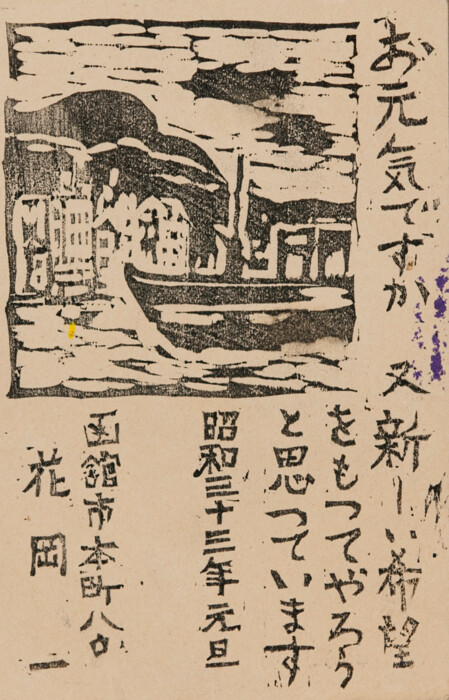 お元気ですか 又新しい希望
をもつてやろう
と思つています
昭和三十三年元旦
函館市本町八〇
花岡一